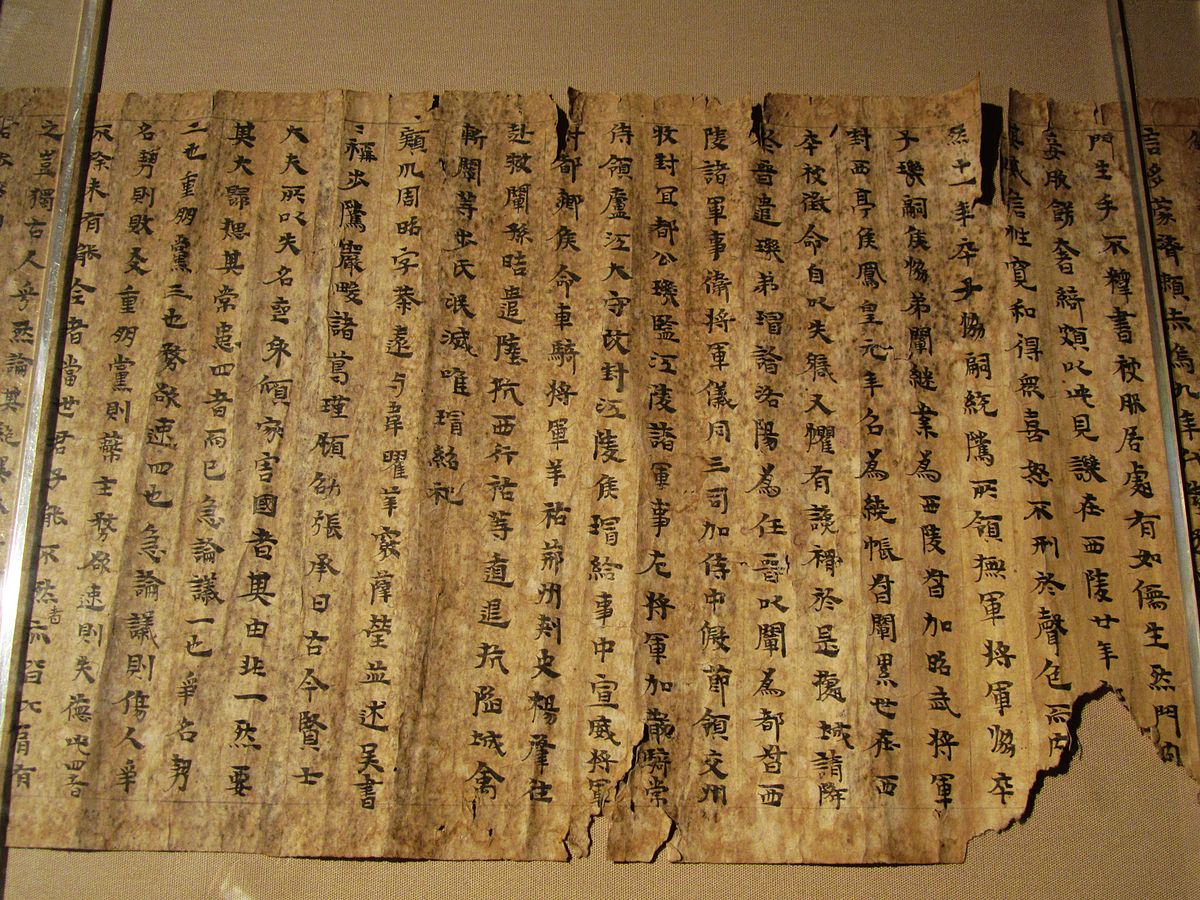 言多蒙濟賴赤烏九年代
門生手不釋書被服居處有如儒生然門內
妾服飾奢綺頗以此見譏在西陵廿年
其威信性寬和得眾喜怒不刑於聲色而內
然十一年卒子協嗣統騭所領撫軍將軍協卒
子璣嗣侯協弟闡継業為西陵督加昭武將軍
封西亭侯鳳皇元年召為繞帳督闡累世在西
卒被徵命自以失軄又懼有讒禍於是據城請降
於晉遣璣弟璿詣洛陽為任晉以闡為都督西
陵諸軍事衛將軍儀同三司加侍中假節領交州
牧封宜都公璣監江陵諸軍事左將軍加散騎常
侍領廬江大守改封江陵侯璿給事中宣威將軍
封都鄉侯命車騎將軍羊祜荊州刾史楊肇往
赴救闡孫晧遣陸抗西行祜等遁退抗陷城禽
斬闡等步氏泯滅唯璿紹祀
潁川周昭字恭遠与韋曜華覈薛瑩並述吳書
稱步騭嚴畯諸葛瑾顧劭張承曰古今賢士
大夫所以失名喪身傾家害國者其由非一然要
其大歸揔其常患四者而已急論議一也爭名勢
二也重朋黨三也務欲速四也急論議則傷人爭
名勢則敗友重朋黨則蔽主務欲速則失德此四者
不除未有能全者當世君子能不然者亦皆比肩有
之豈獨古人乎然論其絕異